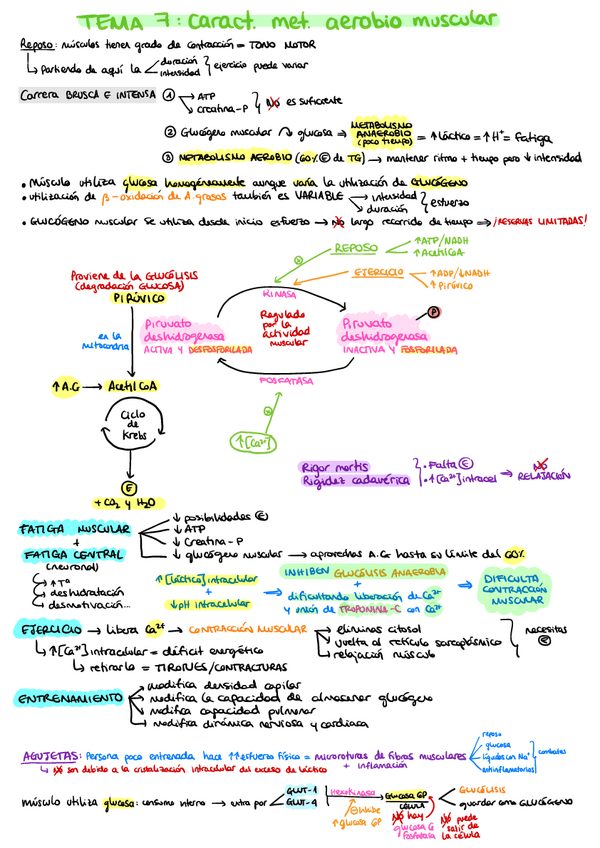 TEMA 7: caract. met. aerobio muscular
Reposo: músculos tienen grado de contracción = TONO MOTOR
Partiendo de aquí la duración intensidad ejercicio puede variar
Carrera BRUSCA E INTENSA ① ATP
creatina-P NO es suficiente
② Glucógeno muscular glucosa ⇒ METABOLISMO ANAEROBIO (poco tiempo) = ↑láctico = ↑H⁺ = Fatiga
③ METABOLISMO AEROBIO (60% Ⓔ de TG) → mantener ritmo + tiempo pero ↓ intensidad
• Músculo utiliza glucosa homogéneamente aunque varía la utilización de GLUCÓGENO
• utilización de β-oxidación de A.grasos también es VARIABLE intensidad duración esfuerzo
• GLUCÓGENO muscular se utiliza desde inicio esfuerzo → NO largo recorrido de tiempo ⇒ ¡RESERVAS LIMITADAS!
REPOSO ↑ATP/NADH
↑AcetilCoA
EJERCICIO ↑ADP/↓NADH
↑Pirúvico
Proviene de la GLUCÓLISIS
(degradación GLUCOSA)
PIRÚVICO
KINASA
Regulado por la actividad muscular
en la mitocondria
Piruvato deshidrogenasa
ACTIVA Y DESFOSFORILADA
P
Piruvato deshidrogenasa
INACTIVA Y FOSFORILADA
FOSFATASA
↑A.G → AcetilCoA
Ciclo de Krebs
↑[Ca²⁺]
Ⓔ
+ CO₂ y H₂O
Rigor mortis
Rigidez cadavérica
• Falta Ⓔ
• ↑[Ca²⁺] intracel → NO RELAJACIÓN
FATIGA MUSCULAR
+
FATIGA CENTRAL
(neuronal)
↑Tª
deshidratación
desmotivación...
↓ posibilidades Ⓔ
↓ ATP
↓ Creatina-P
↓ glucógeno muscular → aprovechas A.G hasta su límite del 60%
↑[láctico] intracelular
+
↓pH intracelular
⇒ INHIBEN GLUCÓLISIS ANAEROBIA
+
dificultando liberación de Ca²⁺
y unión de TROPONINA-C con Ca²⁺
⇒ DIFICULTA CONTRACCIÓN MUSCULAR
EJERCICIO → libera Ca²⁺ → CONTRACCIÓN MUSCULAR
eliminas citosol
vuelta al retículo sarcoplásmico
relajación músculo
necesitas Ⓔ
↑[Ca²⁺] intracelular = déficit energético
retirarlo = TIRONES/CONTRACTURAS
ENTRENAMIENTO
modifica densidad capilar
modifica la capacidad de almacenar glucógeno
modifica capacidad pulmonar
modifica dinámica nerviosa y cardiaca
AGUJETAS: Persona poco entrenada hace ↑↑esfuerzo físico = microroturas de fibras musculares + inflamación
NO son debido a la cristalización intracelular del exceso de láctico
reposo
glucosa
líquidos con Na⁺
antiinflamatorios
combates
músculo utiliza glucosa: consumo interno → entra por GLUT-1
GLUT-4
Hexokinasa
Inhibe
↑glucosa GP
Glucosa GP
CÉLULA
NO hay glucosa G fosfatasa
NO puede salir de la célula
GLUCÓLISIS
guardar como GLUCÓGENO